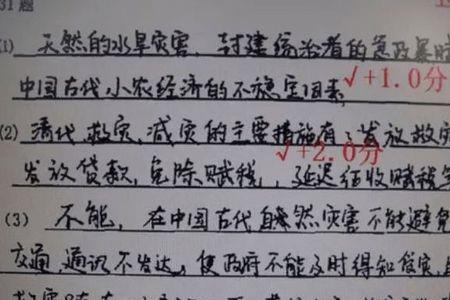 31 题
(1) 天然的水旱灾害、封建统治者的急政暴赋
中国古代小农经济的不稳定因素
√+1.0分
(2) 清代救灾、减灾的主要措施有:发放救灾
√+2.0分
发放贷款,免除赋税,延迟征收赋税
(3) 不能,在中国古代自然灾害不能避免
交通、通讯不发达,使政府不能及时得知受灾